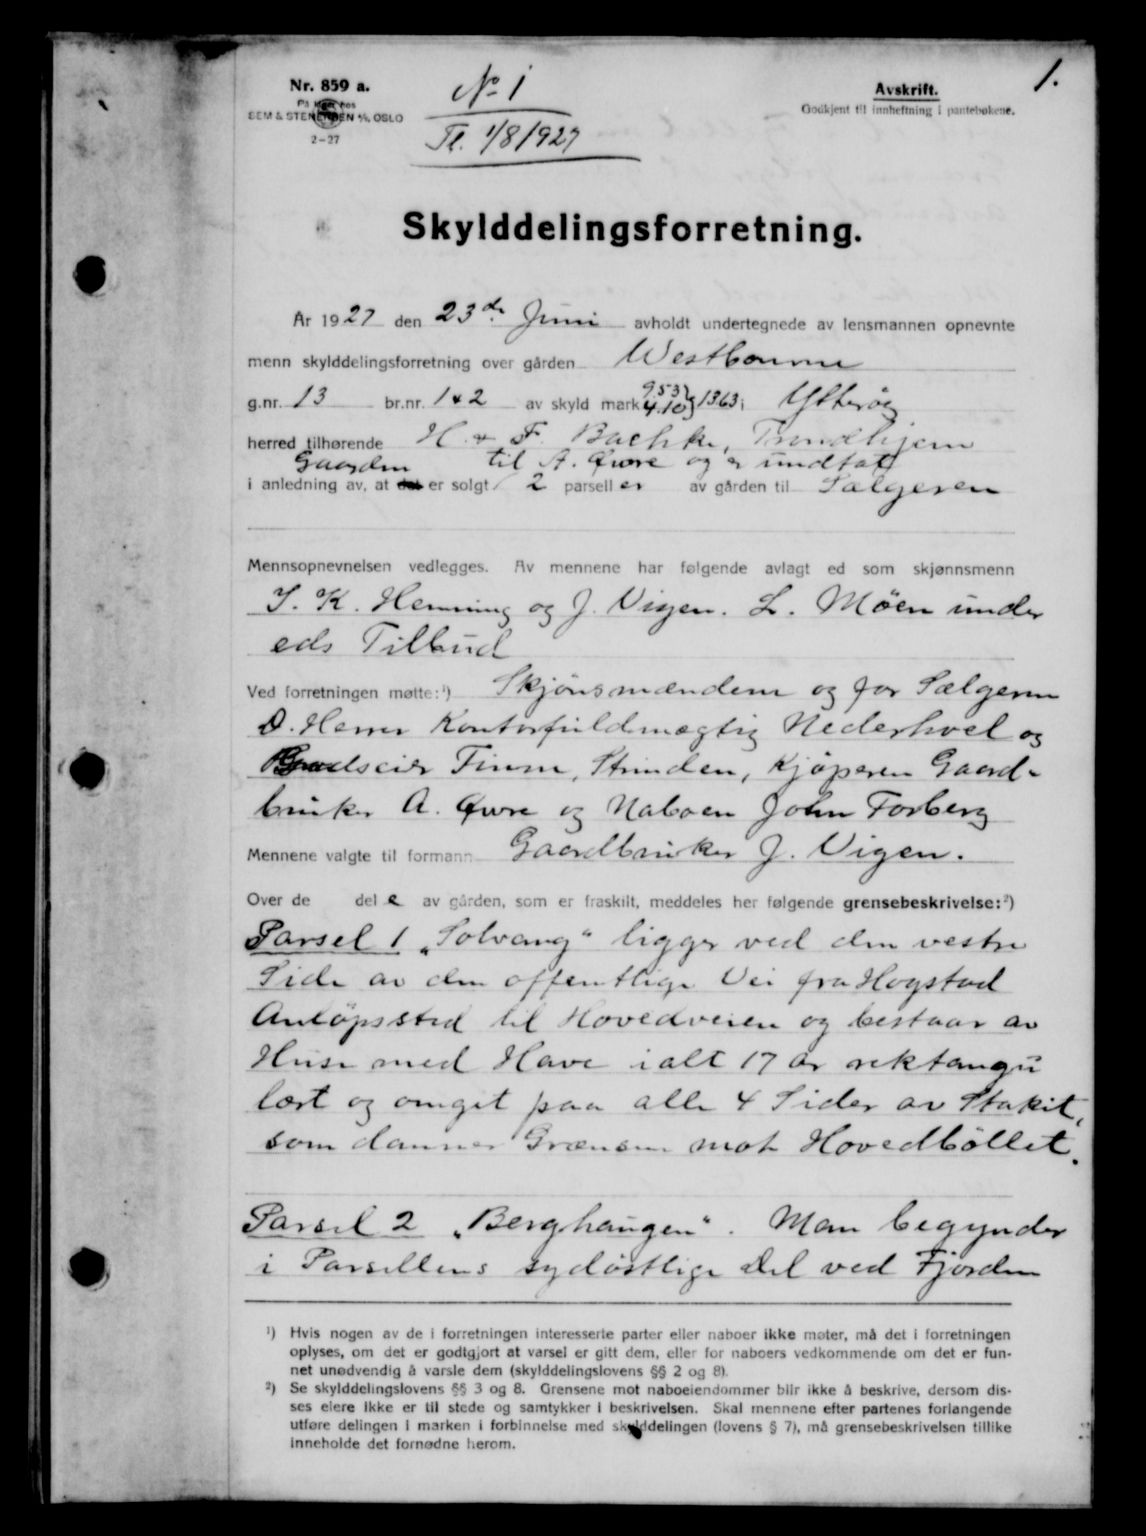 1.
Nr. 859 a.
På lager hos
SEM & STENERSEN A/S, OSLO
2-27
No 1
Tl. 1/8/1927
Avskrift.
Godkjent til innheftning i pantebøkene.
Skylddelingsforretning.
År 1927 den 23de Juni avholdt undertegnede av lensmannen opnevnte
menn skylddelingsforretning over gården Westbourne
g.nr. 13 br.nr. 1 & 2 av skyld mark 9.53 4.10 } 1363 i Ytterøy
herred tilhørende H. & F. Bachke, Trondhjem
Gaarden til A. Øwre og er undtat
i anledning av, at det er solgt 2 parseller av gården til Sælgeren
Mennsopnevnelsen vedlegges. Av mennene har følgende avlagt ed som skjønnsmenn
I. K. Henning og J. Vigen. L. Möen under
eds Tilbud
Ved forretningen møtte:¹) Skjönsmændene og for Sælgeren
D. Herrer Kontorfuldmægtig Nederhoel og
Godseier Finne, Strinden, Kjöperen Gaard-
bruker A. Øwre og Naboen John Forberg
Mennene valgte til formann Gaardbruker J. Vigen.
Over de dele av gården, som er fraskilt, meddeles her følgende grensebeskrivelse:²)
Parsel 1 „Solvang“ ligger ved den vestre
Side av den offentlige Vei fra Hogstad
Anløpssted til Hovedveien og bestaar av
Huse med Have ialt 17 ar rektangu
lært og omgit paa alle 4 Sider av Stakit,
som danner Grænsen mot Hovedböllet.
Parsel 2 „Berghaugen“. Man begynder
i Parsellens sydöstlige Del ved Fjorden
¹) Hvis nogen av de i forretningen interesserte parter eller naboer ikke møter, må det i forretningen
oplyses, om det er godtgjort at varsel er gitt dem, eller for naboers vedkommende om det er fun-
net unødvendig å varsle dem (skylddelingslovens §§ 2 og 8).
²) Se skylddelingslovens §§ 3 og 8. Grensene mot naboeiendommer blir ikke å beskrive, dersom dis-
ses eiere ikke er til stede og samtykker i beskrivelsen. Skal mennene efter partenes forlangende
utføre delingen i marken i forbinnelse med skylddelingen (lovens § 7), må grensebeskrivelsen tillike
inneholde det fornødne herom.